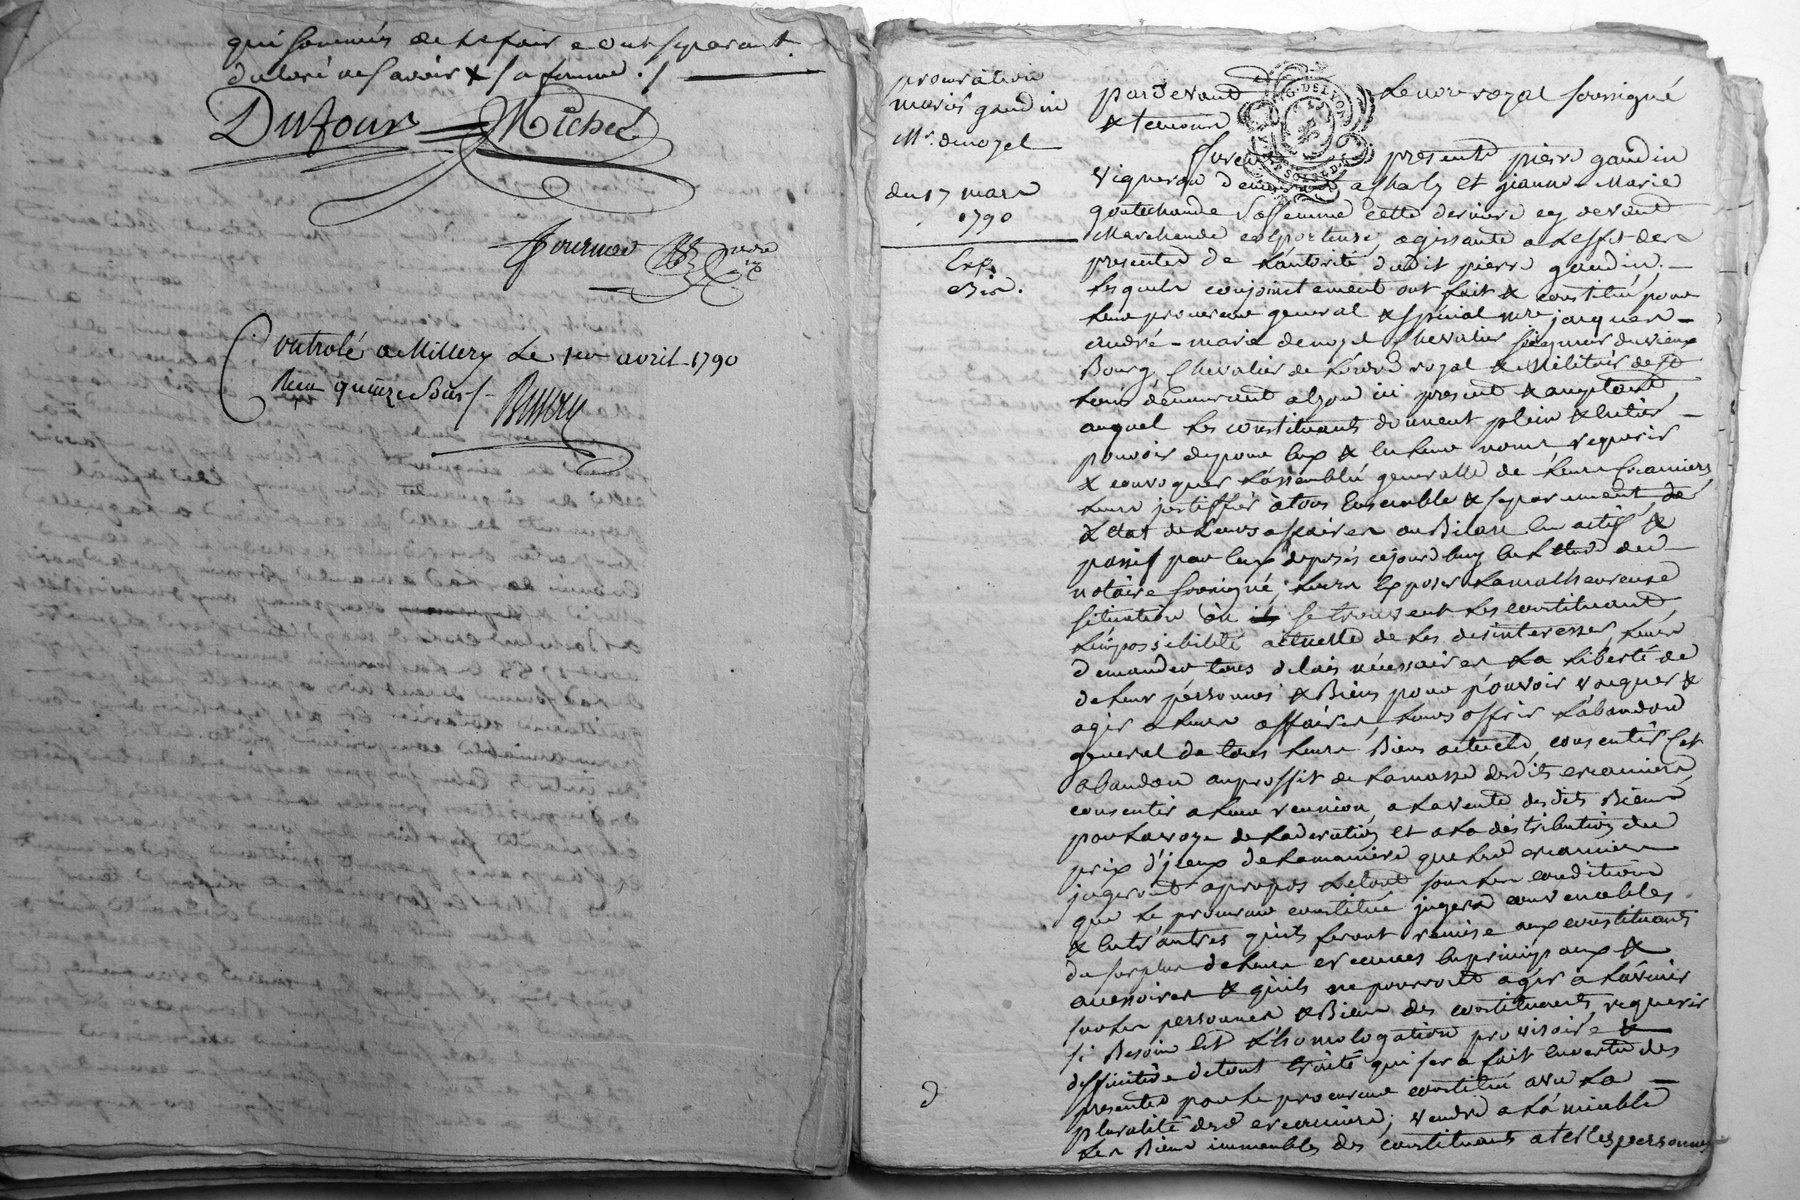 qui sommés de le faire ont separemt
déclaré ne savoir & sa femme ./.
Dufour Michel
fournier
Controlé a Millery Le 1er avril 1790
Reçu quinze sous
procuration
mariés gaudin
Mr. denozel
du 17 mars
1790
Exp.
Bis.
G. DE LYON
pardevant Le nore royal soussigné
& temoins
furent presents pierre gaudin
vigneron demeurant a Charly et jeanne-Marie
sa femme cette derniere cy devant
Marchande colporteuse, agissante a l'effet des
presentes de L'autorité dudit pierre gaudin,
Lesquels conjointement ont fait & constitué pour
Leur procureur general & special mre jacques
andré-marie denozel chevalier seigneur du vieux
Bourg, chevalier de L'ordre royal & Militaire de St
Louis demeurant a lyon ici present & acceptant
auquel Les constituants donnent plein & entier
pouvoir de pour eux & en leurs noms requerir
& convoquer L'assemblé generalle de leurs creanciers
Leurs justiffier à tous Ensemble & separement de
L'etat de Leurs affaires ou Bilan en actif &
passif par eux deposés cejourd'huy en L'etude du
notaire soussigné, Leurs Exposer La malheureuse
situation où ils se trouvent Les constituants,
L'impossibilité actuelle de Les desinteresser, Leurs
demander tous delais nécessaires La Liberté de
de Leur personnes & Biens pour pouvoir vaquer &
agir a Leurs affaires, Leurs offrir L'abandon
general de tous Leurs Biens actuels, consentir Cet
abandon au proffit de La masse desdits creanciers,
consentir a Leur reunion, a La vente desdits Biens
par La voye de La et a La distribution du
prix d'jceux de La maniere que Les creanciers
jugeront apropos Le tout sous Les conditions
que Le procureur constitué jugera convenables
& entr'autres qu'ils feront remise aux constituants
du surplus de Leurs creances en principaux &
accessoires & qu'ils ne pourront agir a L'avenir
sur Les personnes & Biens des constituants, requerir
si Besoin Est L'homologation provisoire &
deffinitive de tout traité qui sera fait en vertu des
presentes par Le procureur constitué avec La
pluralité desd creanciers; vendre a L'amiable
Les Biens immeubles des constituants a telles personnes